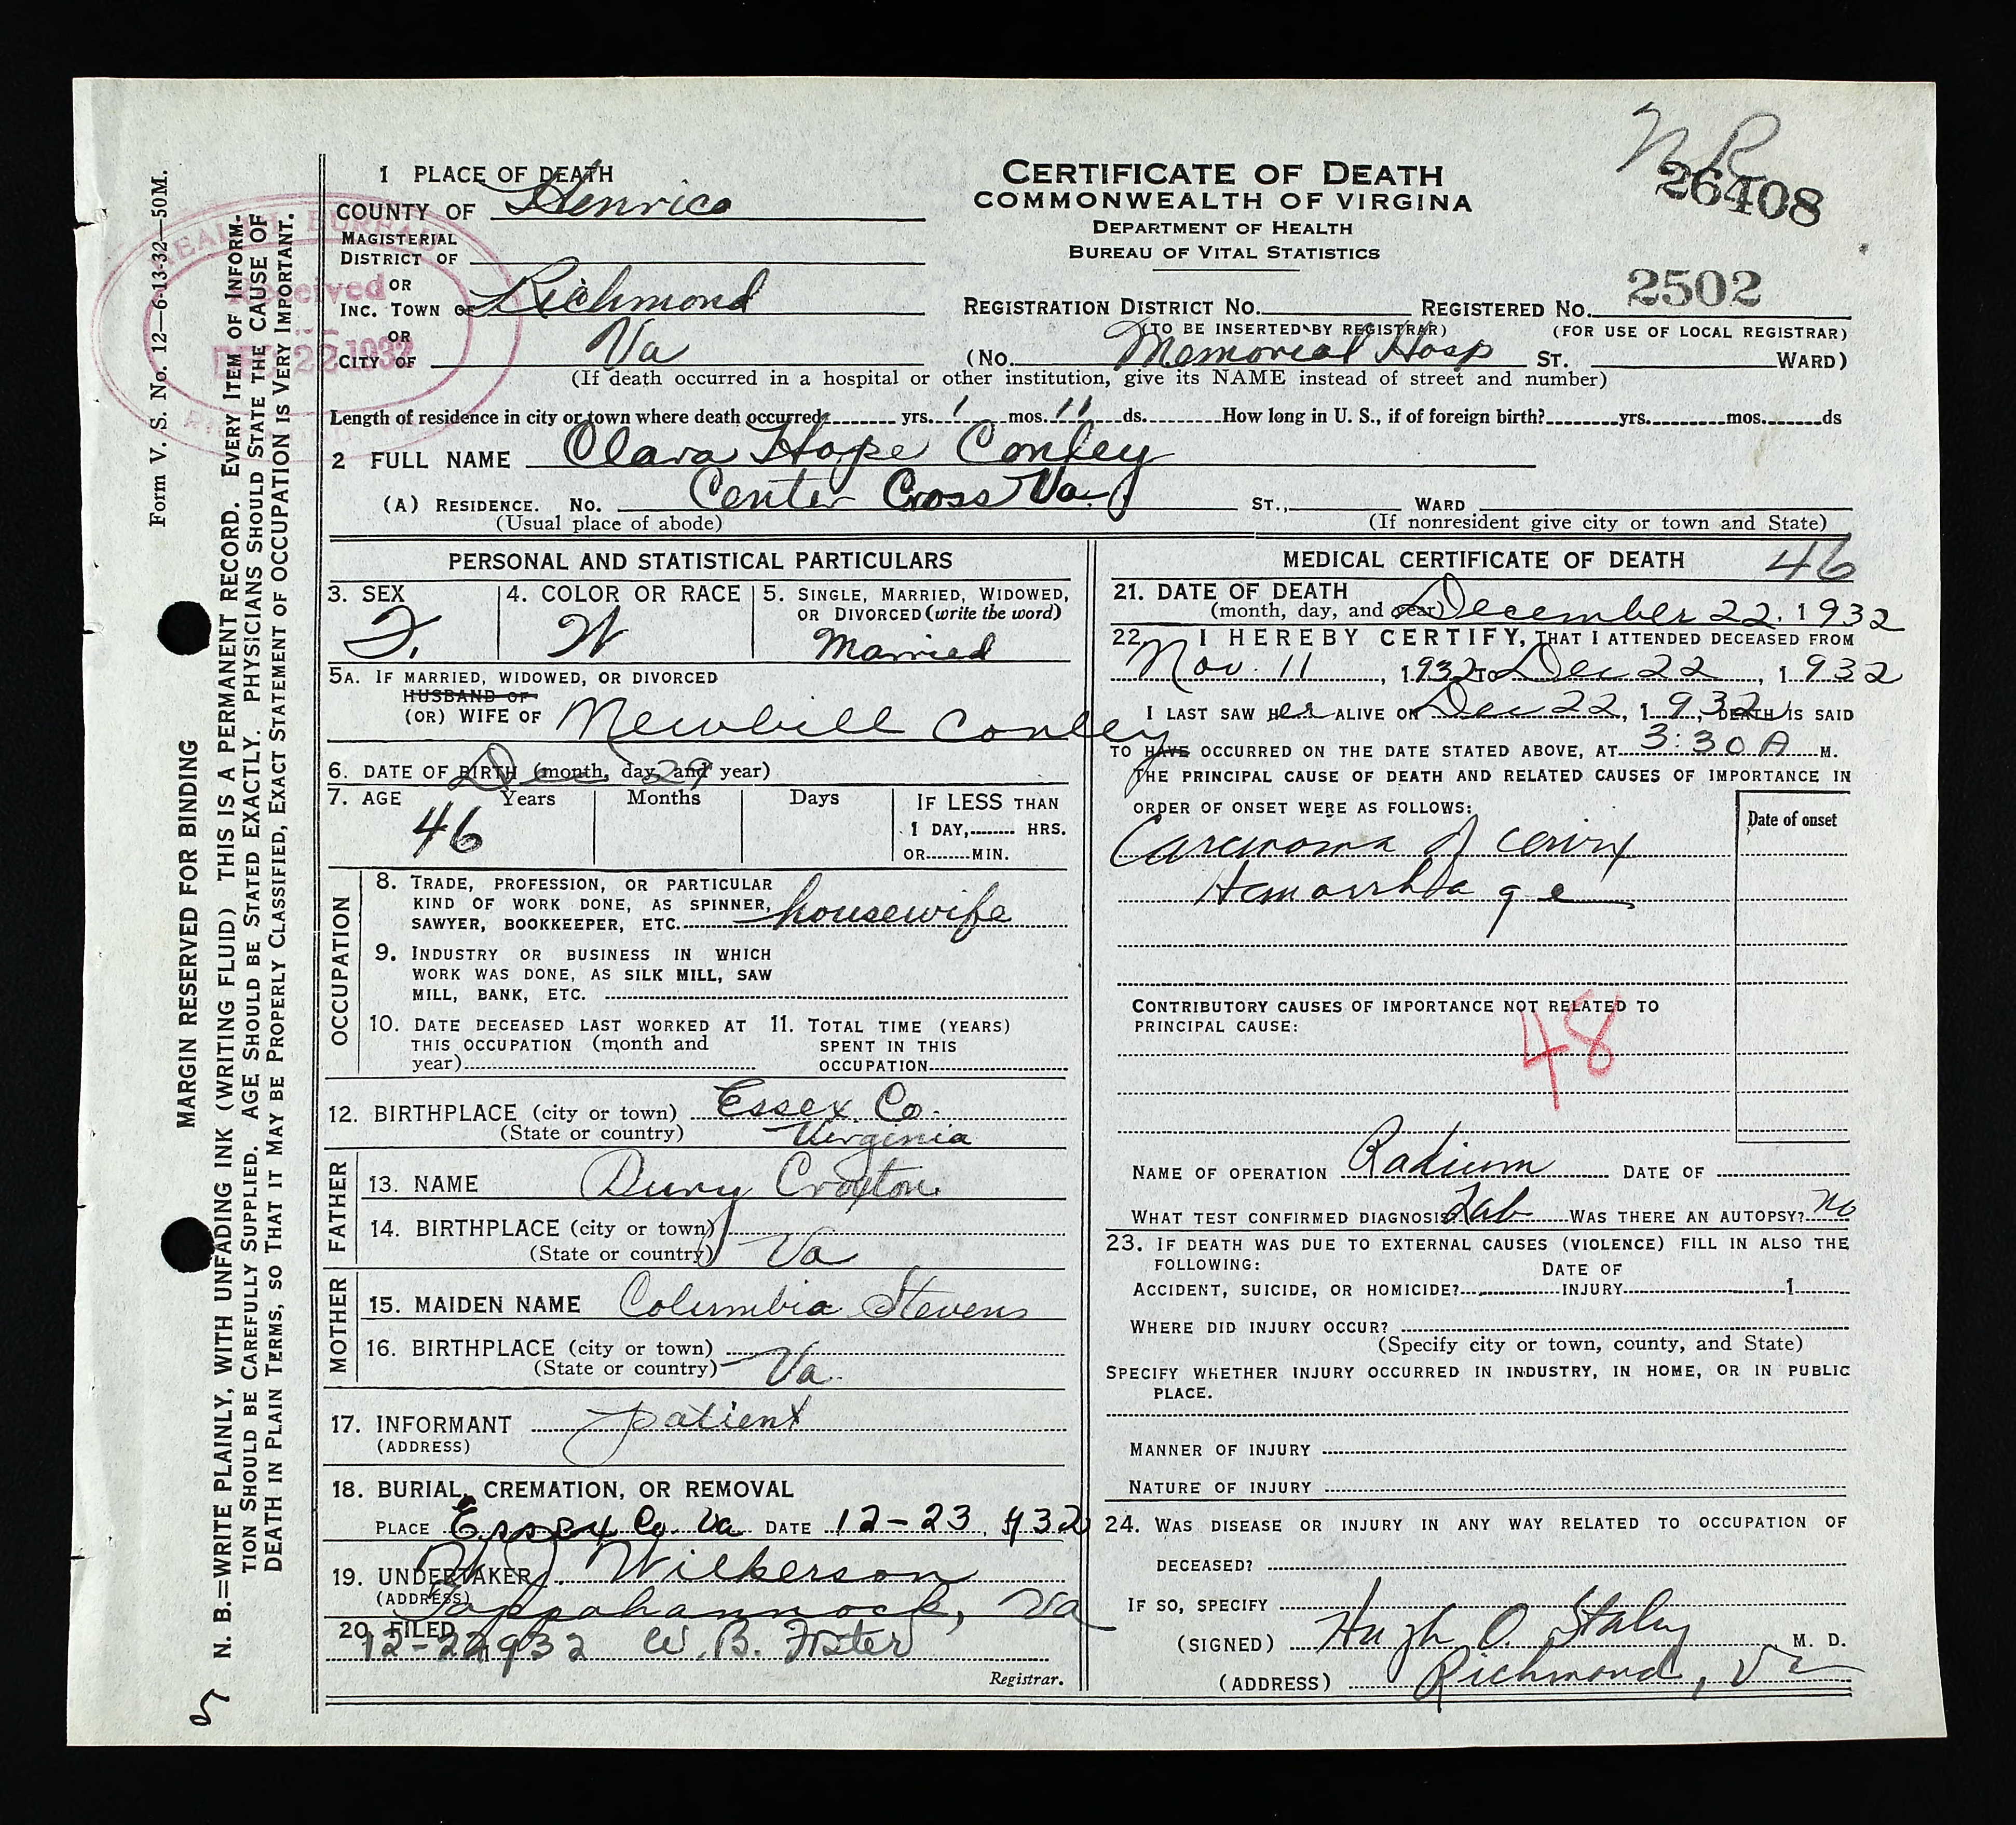 Form V. S. No. 12—6-13-32—50M.
MARGIN RESERVED FOR BINDING
N. B.=WRITE PLAINLY, WITH UNFADING INK (WRITING FLUID) THIS IS A PERMANENT RECORD. EVERY ITEM OF INFORM-
TION SHOULD BE CAREFULLY SUPPLIED. AGE SHOULD BE STATED EXACTLY. PHYSICIANS SHOULD STATE THE CAUSE OF
DEATH IN PLAIN TERMS, SO THAT IT MAY BE PROPERLY CLASSIFIED, EXACT STATEMENT OF OCCUPATION IS VERY IMPORTANT.
HEALTH BUREAU
Received
DEC 22 1932
N R
26408
CERTIFICATE OF DEATH
COMMONWEALTH OF VIRGINA
DEPARTMENT OF HEALTH
BUREAU OF VITAL STATISTICS
1 PLACE OF DEATH
COUNTY OF Henrico
MAGISTERIAL
DISTRICT OF
OR
INC. TOWN OF Richmond
OR
CITY OF Va
REGISTRATION DISTRICT NO. REGISTERED NO. 2502
(TO BE INSERTED BY REGISTRAR) (FOR USE OF LOCAL REGISTRAR)
(NO. Memorial Hosp ST. WARD)
(If death occurred in a hospital or other institution, give its NAME instead of street and number)
Length of residence in city or town where death occurred yrs. 1 mos. 11 ds. How long in U. S., if of foreign birth? yrs. mos. ds
2 FULL NAME Clara Hope Conley
(A) RESIDENCE. NO. Center Cross Va. ST., WARD
(Usual place of abode) (If nonresident give city or town and State)
PERSONAL AND STATISTICAL PARTICULARS
3. SEX F.
4. COLOR OR RACE W
5. SINGLE, MARRIED, WIDOWED,
OR DIVORCED (write the word)
Married
5A. IF MARRIED, WIDOWED, OR DIVORCED
HUSBAND OF
(OR) WIFE OF Newbill Conley
6. DATE OF BIRTH (month, day and year) Dec 29
7. AGE Years Months Days IF LESS THAN
46
1 DAY, HRS.
OR MIN.
OCCUPATION
8. TRADE, PROFESSION, OR PARTICULAR
KIND OF WORK DONE, AS SPINNER,
SAWYER, BOOKKEEPER, ETC. housewife
9. INDUSTRY OR BUSINESS IN WHICH
WORK WAS DONE, AS SILK MILL, SAW
MILL, BANK, ETC.
10. DATE DECEASED LAST WORKED AT
THIS OCCUPATION (month and
year)
11. TOTAL TIME (YEARS)
SPENT IN THIS
OCCUPATION
12. BIRTHPLACE (city or town) Essex Co.
(State or country) Virginia
FATHER
13. NAME Croxton
14. BIRTHPLACE (city or town)
(State or country) Va
MOTHER
15. MAIDEN NAME Columbia Stevens
16. BIRTHPLACE (city or town)
(State or country) Va.
17. INFORMANT patient
(ADDRESS)
18. BURIAL, CREMATION, OR REMOVAL
PLACE Essex Co. Va DATE 12-23, 1932
19. UNDERTAKER J. Wilkerson
(ADDRESS) Tappahannock, Va
20. FILED 12-22 1932 W. B. Foster
Registrar.
MEDICAL CERTIFICATE OF DEATH 46
21. DATE OF DEATH
(month, day, and year) December 22, 1932
22. I HEREBY CERTIFY, THAT I ATTENDED DECEASED FROM
Nov. 11, 1932 TO Dec 22, 1932
I LAST SAW HER ALIVE ON Dec 22, 1932, DEATH IS SAID
TO HAVE OCCURRED ON THE DATE STATED ABOVE, AT 3:30 A M.
THE PRINCIPAL CAUSE OF DEATH AND RELATED CAUSES OF IMPORTANCE IN
ORDER OF ONSET WERE AS FOLLOWS:
Date of onset
Carcinoma of cervix
Hemorrhage
CONTRIBUTORY CAUSES OF IMPORTANCE NOT RELATED TO
PRINCIPAL CAUSE:
48
NAME OF OPERATION Radium DATE OF
WHAT TEST CONFIRMED DIAGNOSIS? Lab WAS THERE AN AUTOPSY? No
23. IF DEATH WAS DUE TO EXTERNAL CAUSES (VIOLENCE) FILL IN ALSO THE
FOLLOWING:
DATE OF
ACCIDENT, SUICIDE, OR HOMICIDE? INJURY 1
WHERE DID INJURY OCCUR?
(Specify city or town, county, and State)
SPECIFY WHETHER INJURY OCCURRED IN INDUSTRY, IN HOME, OR IN PUBLIC
PLACE.
MANNER OF INJURY
NATURE OF INJURY
24. WAS DISEASE OR INJURY IN ANY WAY RELATED TO OCCUPATION OF
DECEASED?
IF SO, SPECIFY
(SIGNED) Hugh O. Staley M. D.
(ADDRESS) Richmond, Va